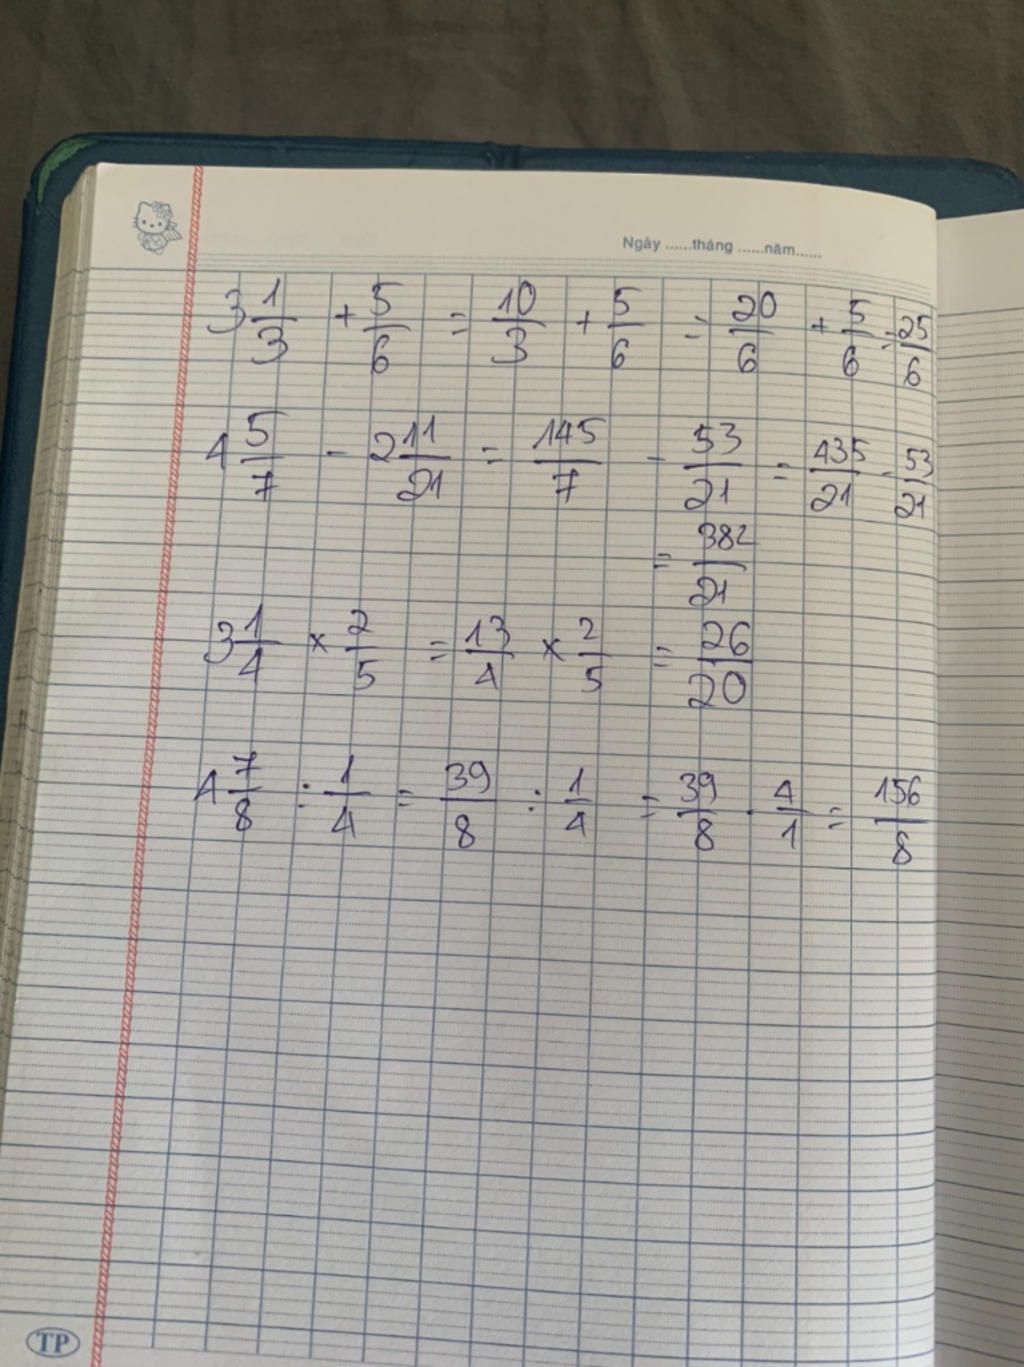 Ngày ......tháng ......năm......
3 1/3 + 5/6 = 10/3 + 5/6 = 20/6 + 5/6 = 25/6
4 5/7 - 2 11/21 = 145/7 - 53/21 = 435/21 - 53/21
= 382/21
3 1/4 × 2/5 = 13/4 × 2/5 = 26/20
4 7/8 : 1/4 = 39/8 : 1/4 = 39/8 · 4/1 = 156/8
TP